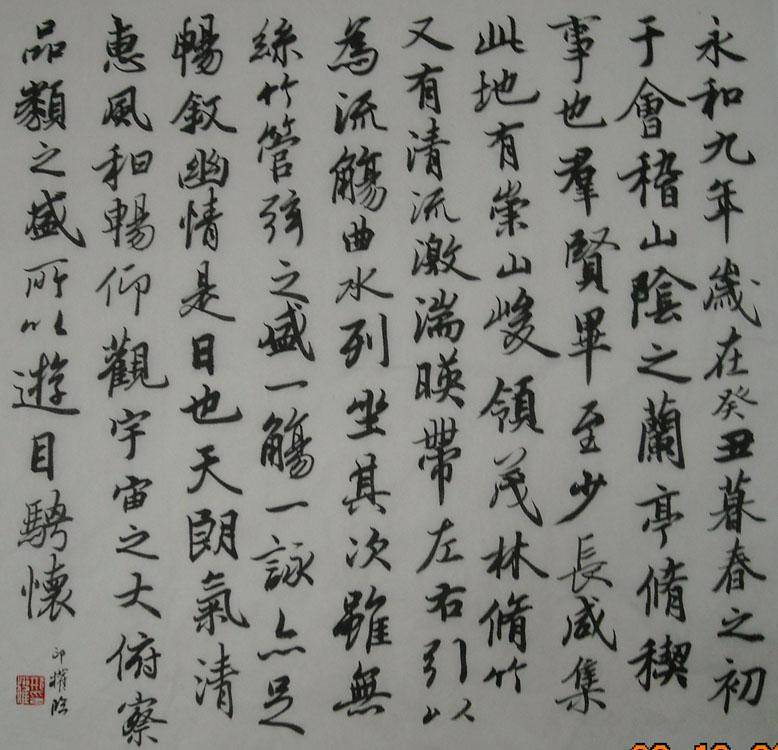 永和九年歲在癸丑暮春之初
于會稽山陰之蘭亭脩稧
事也羣賢畢至少長咸集
此地有崇山峻領茂林脩竹
又有清流激湍暎帶左右引以
為流觴曲水列坐其次雖無
絲竹管弦之盛一觴一詠亦足
暢敘幽情是日也天朗氣清
惠風和暢仰觀宇宙之大俯察
品類之盛所以遊目騁懷
臨